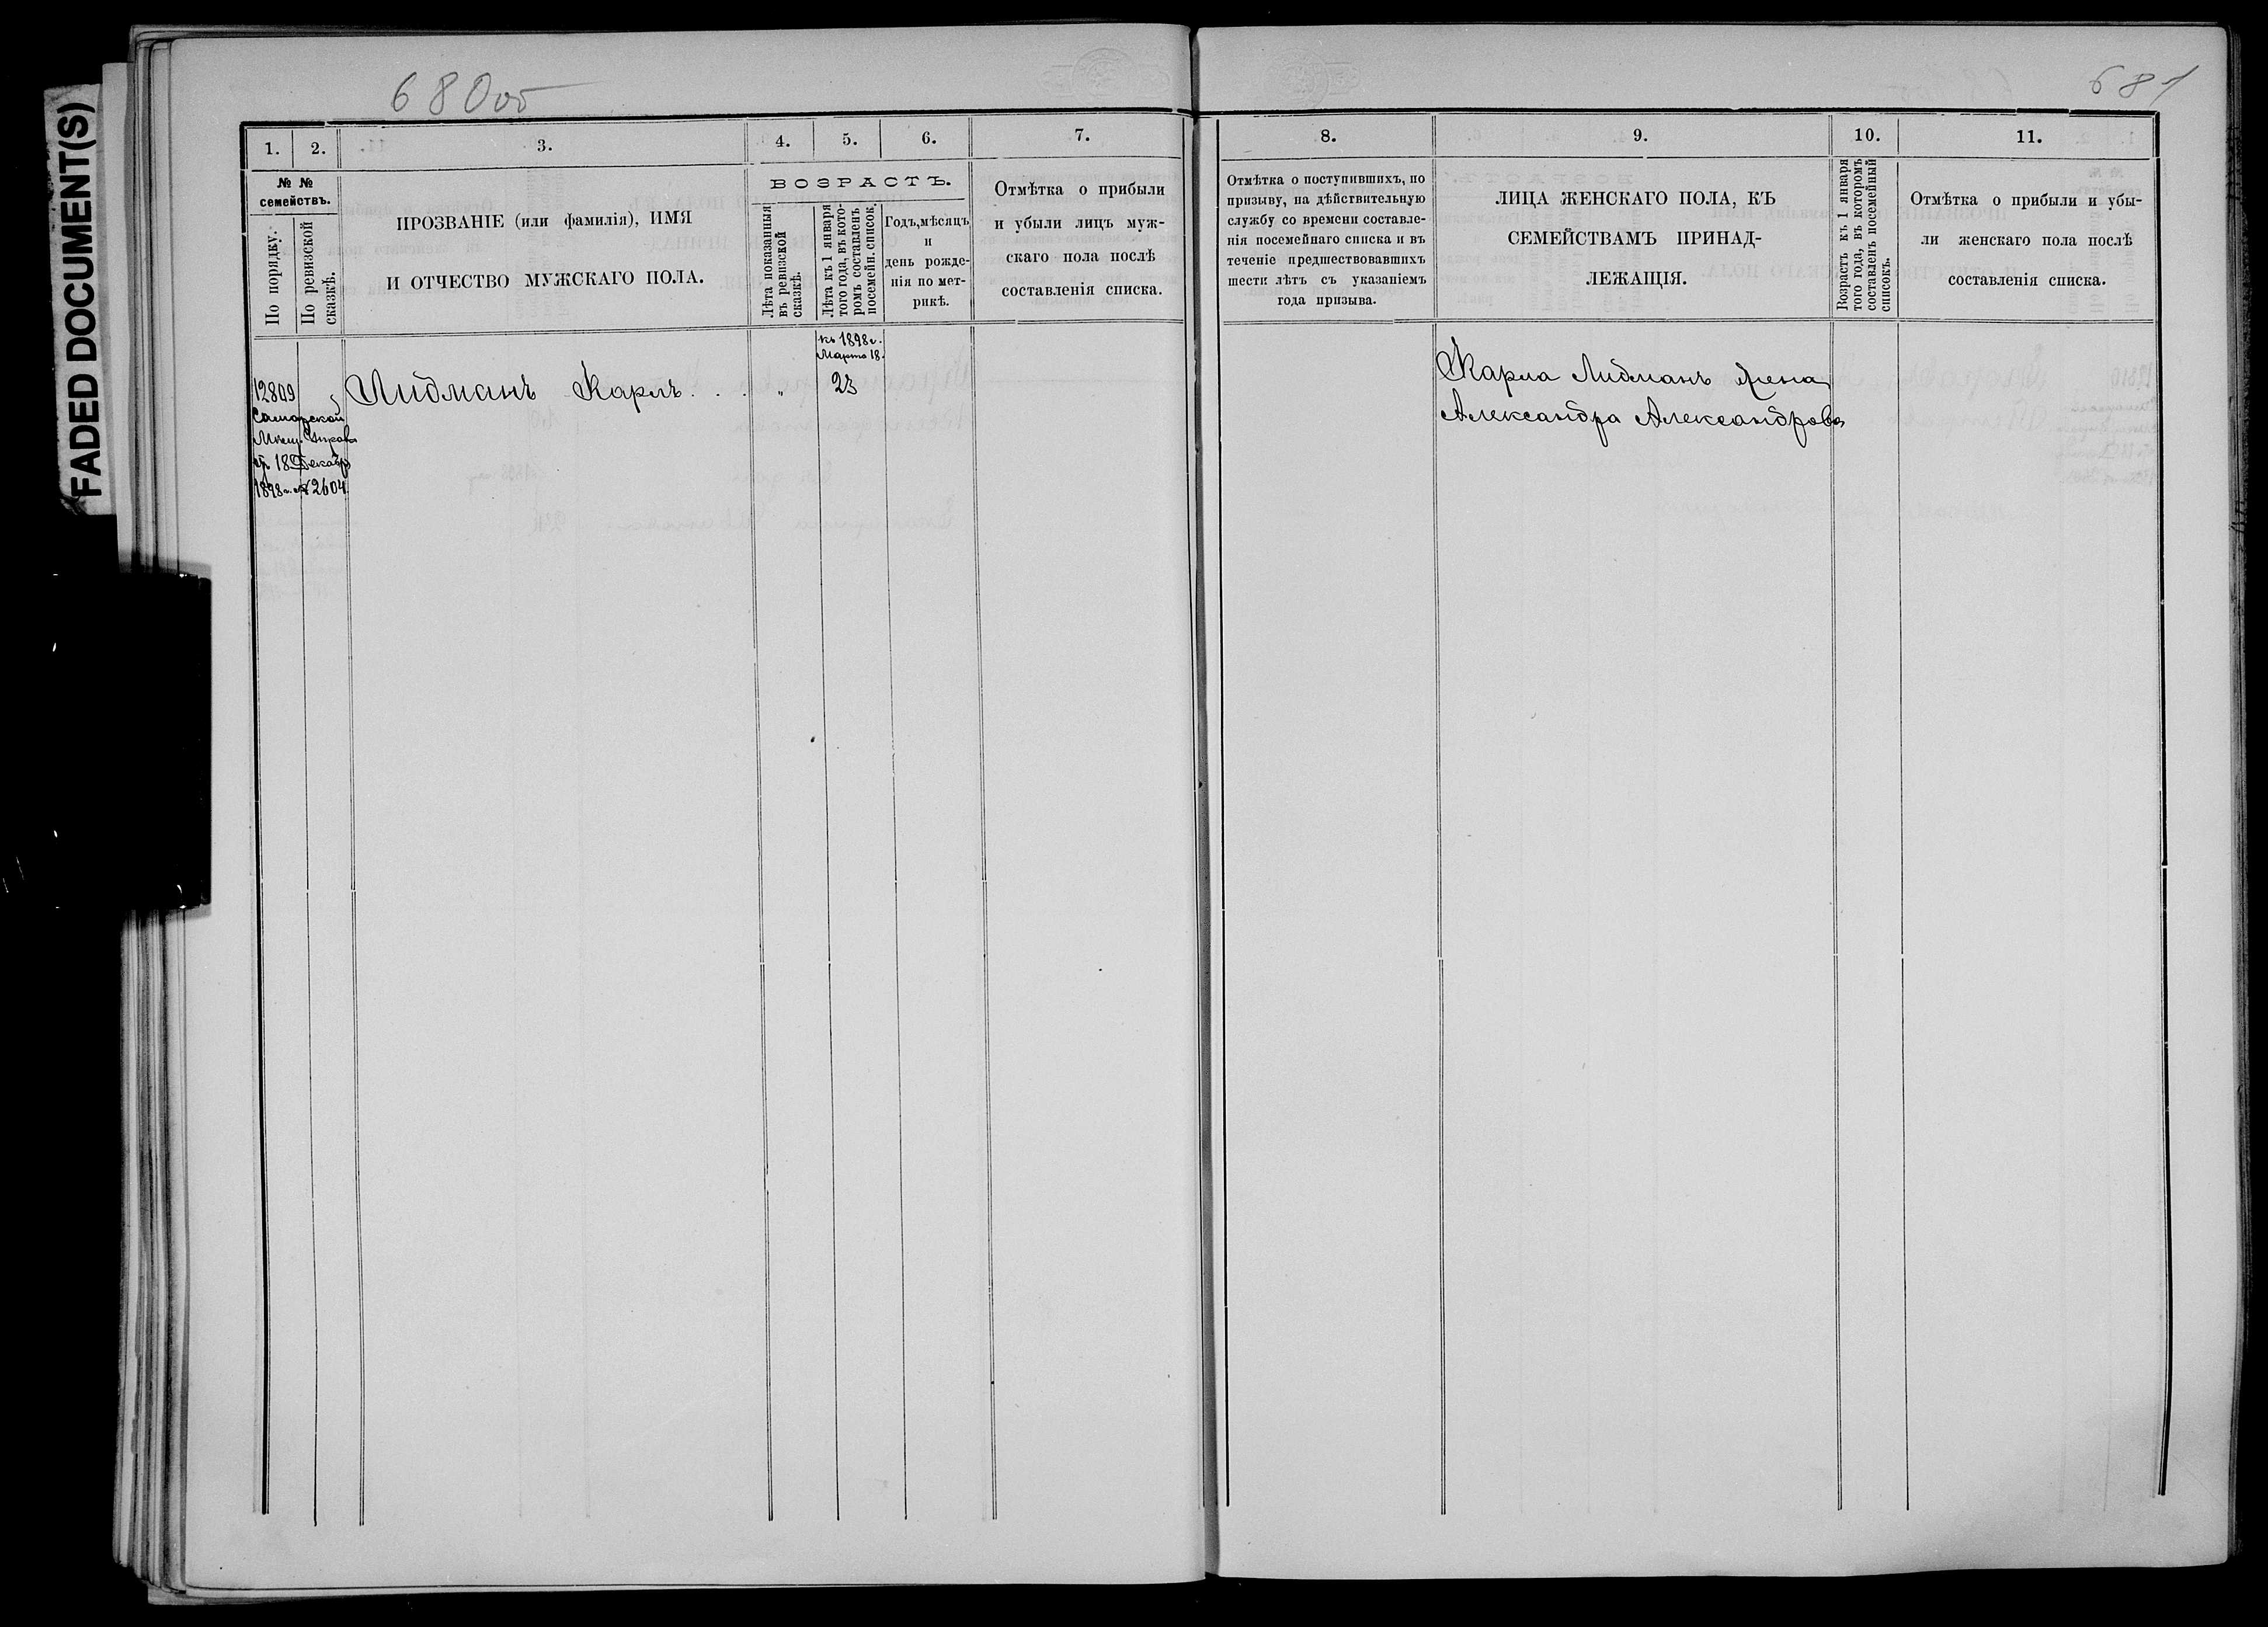 FADED DOCUMENT(S)
680об
681
1.
2.
3.
4.
5.
6.
7.
№ №
семействъ.
По порядку.
По ревизской
сказкѣ.
ПРОЗВАНІЕ (или фамилія), ИМЯ
И ОТЧЕСТВО МУЖСКАГО ПОЛА.
ВОЗРАСТЪ.
Лѣта показанныя
въ ревизской
сказкѣ.
Лѣта къ 1 января
того года, въ кото-
ромъ составленъ
посемейн. список.
Годъ, мѣсяцъ
и
день рожде-
нія по мет-
рикѣ.
Отмѣтка о прибыли
и убыли лицъ муж-
скаго пола послѣ
составленія списка.
къ 1898 г.
Марта 18.
12809
Самарской
Мѣщ. Управы
18 Декабря
1898 г. № 2604
Лидманъ Карлъ . . .
„
23
8.
9.
10.
11.
Отмѣтка о поступившихъ, по
призыву, на дѣйствительную
службу со времени составле-
нія посемейнаго списка и въ
теченіе предшествовавшихъ
шести лѣтъ съ указаніемъ
года призыва.
ЛИЦА ЖЕНСКАГО ПОЛА, КЪ
СЕМЕЙСТВАМЪ ПРИНАД-
ЛЕЖАЩІЯ.
Возрастъ къ 1 января
того года, въ которомъ
составленъ посемейный
списокъ.
Отмѣтка о прибыли и убы-
ли женскаго пола послѣ
составленія списка.
Карла Лидманъ жена
Александра Александрова